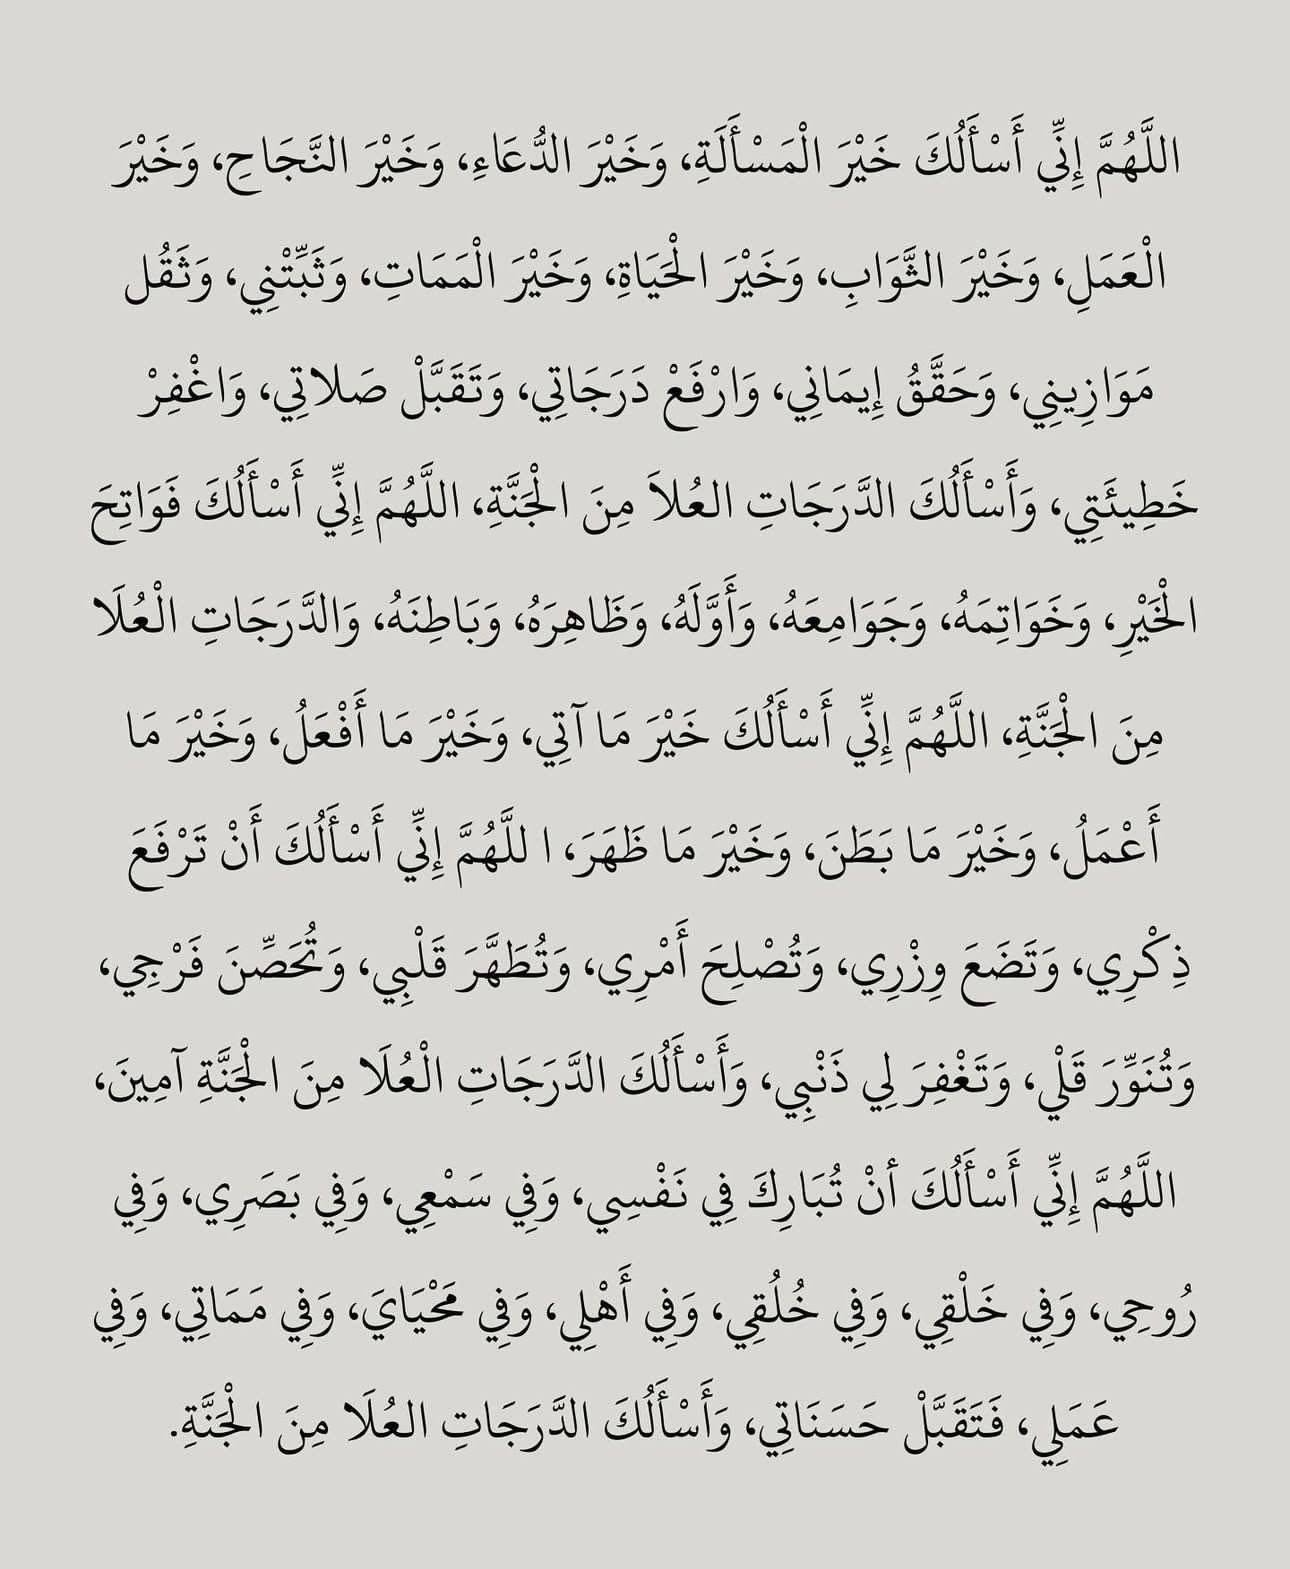 اللَّهُمَّ إِنِّي أَسْأَلُكَ خَيْرَ الْمَسْأَلَةِ، وَخَيْرَ الدُّعَاءِ، وَخَيْرَ النَّجَاحِ، وَخَيْرَ
الْعَمَلِ، وَخَيْرَ الثَّوَابِ، وَخَيْرَ الْحَيَاةِ، وَخَيْرَ الْمَمَاتِ، وَثَبِّتْنِي، وَثَقُل
مَوَازِينِي، وَحَقَّقُ إِيمَانِي، وَارْفَعْ دَرَجَاتِي، وَتَقَبَّلْ صَلاتِي، وَاغْفِرْ
خَطِيئَتِي، وَأَسْأَلُكَ الدَّرَجَاتِ العُلاَ مِنَ الْجَنَّةِ، اللَّهُمَّ إِنِّي أَسْأَلُكَ فَوَاتِحَ
الْخَيْرِ، وَخَوَاتِمَهُ، وَجَوَامِعَهُ، وَأَوَّلَهُ، وَظَاهِرَهُ، وَبَاطِنَهُ، وَالدَّرَجَاتِ الْعُلَا
مِنَ الْجَنَّةِ، اللَّهُمَّ إِنِّي أَسْأَلُكَ خَيْرَ مَا آتِي، وَخَيْرَ مَا أَفْعَلُ، وَخَيْرَ مَا
أَعْمَلُ، وَخَيْرَ مَا بَطَنَ، وَخَيْرَ مَا ظَهَرَ، ا للَّهُمَّ إِنِّي أَسْأَلُكَ أَنْ تَرْفَعَ
ذِكْرِي، وَتَضَعَ وِزْرِي، وَتُصْلِحَ أَمْرِي، وَتُطَهَّرَ قَلْبِي، وَتُحَصِّنَ فَرْجِي،
وَتُنَوِّرَ قَلْي، وَتَغْفِرَ لِي ذَنْبِي، وَأَسْأَلُكَ الدَّرَجَاتِ الْعُلَا مِنَ الْجَنَّةِ آمِينَ،
اللَّهُمَّ إِنِّي أَسْأَلُكَ أنْ تُبَارِكَ فِي نَفْسِي، وَفِي سَمْعِي، وَفِي بَصَرِي، وَفِي
رُوحِي، وَفِي خَلْقِي، وَفِي خُلُقِي، وَفِي أَهْلِي، وَفِي مَحْيَايَ، وَفِي مَمَاتِي، وَفِي
عَمَلِي، فَتَقَبَّلْ حَسَنَاتِي، وَأَسْأَلُكَ الدَّرَجَاتِ العُلَا مِنَ الْجَنَّةِ.